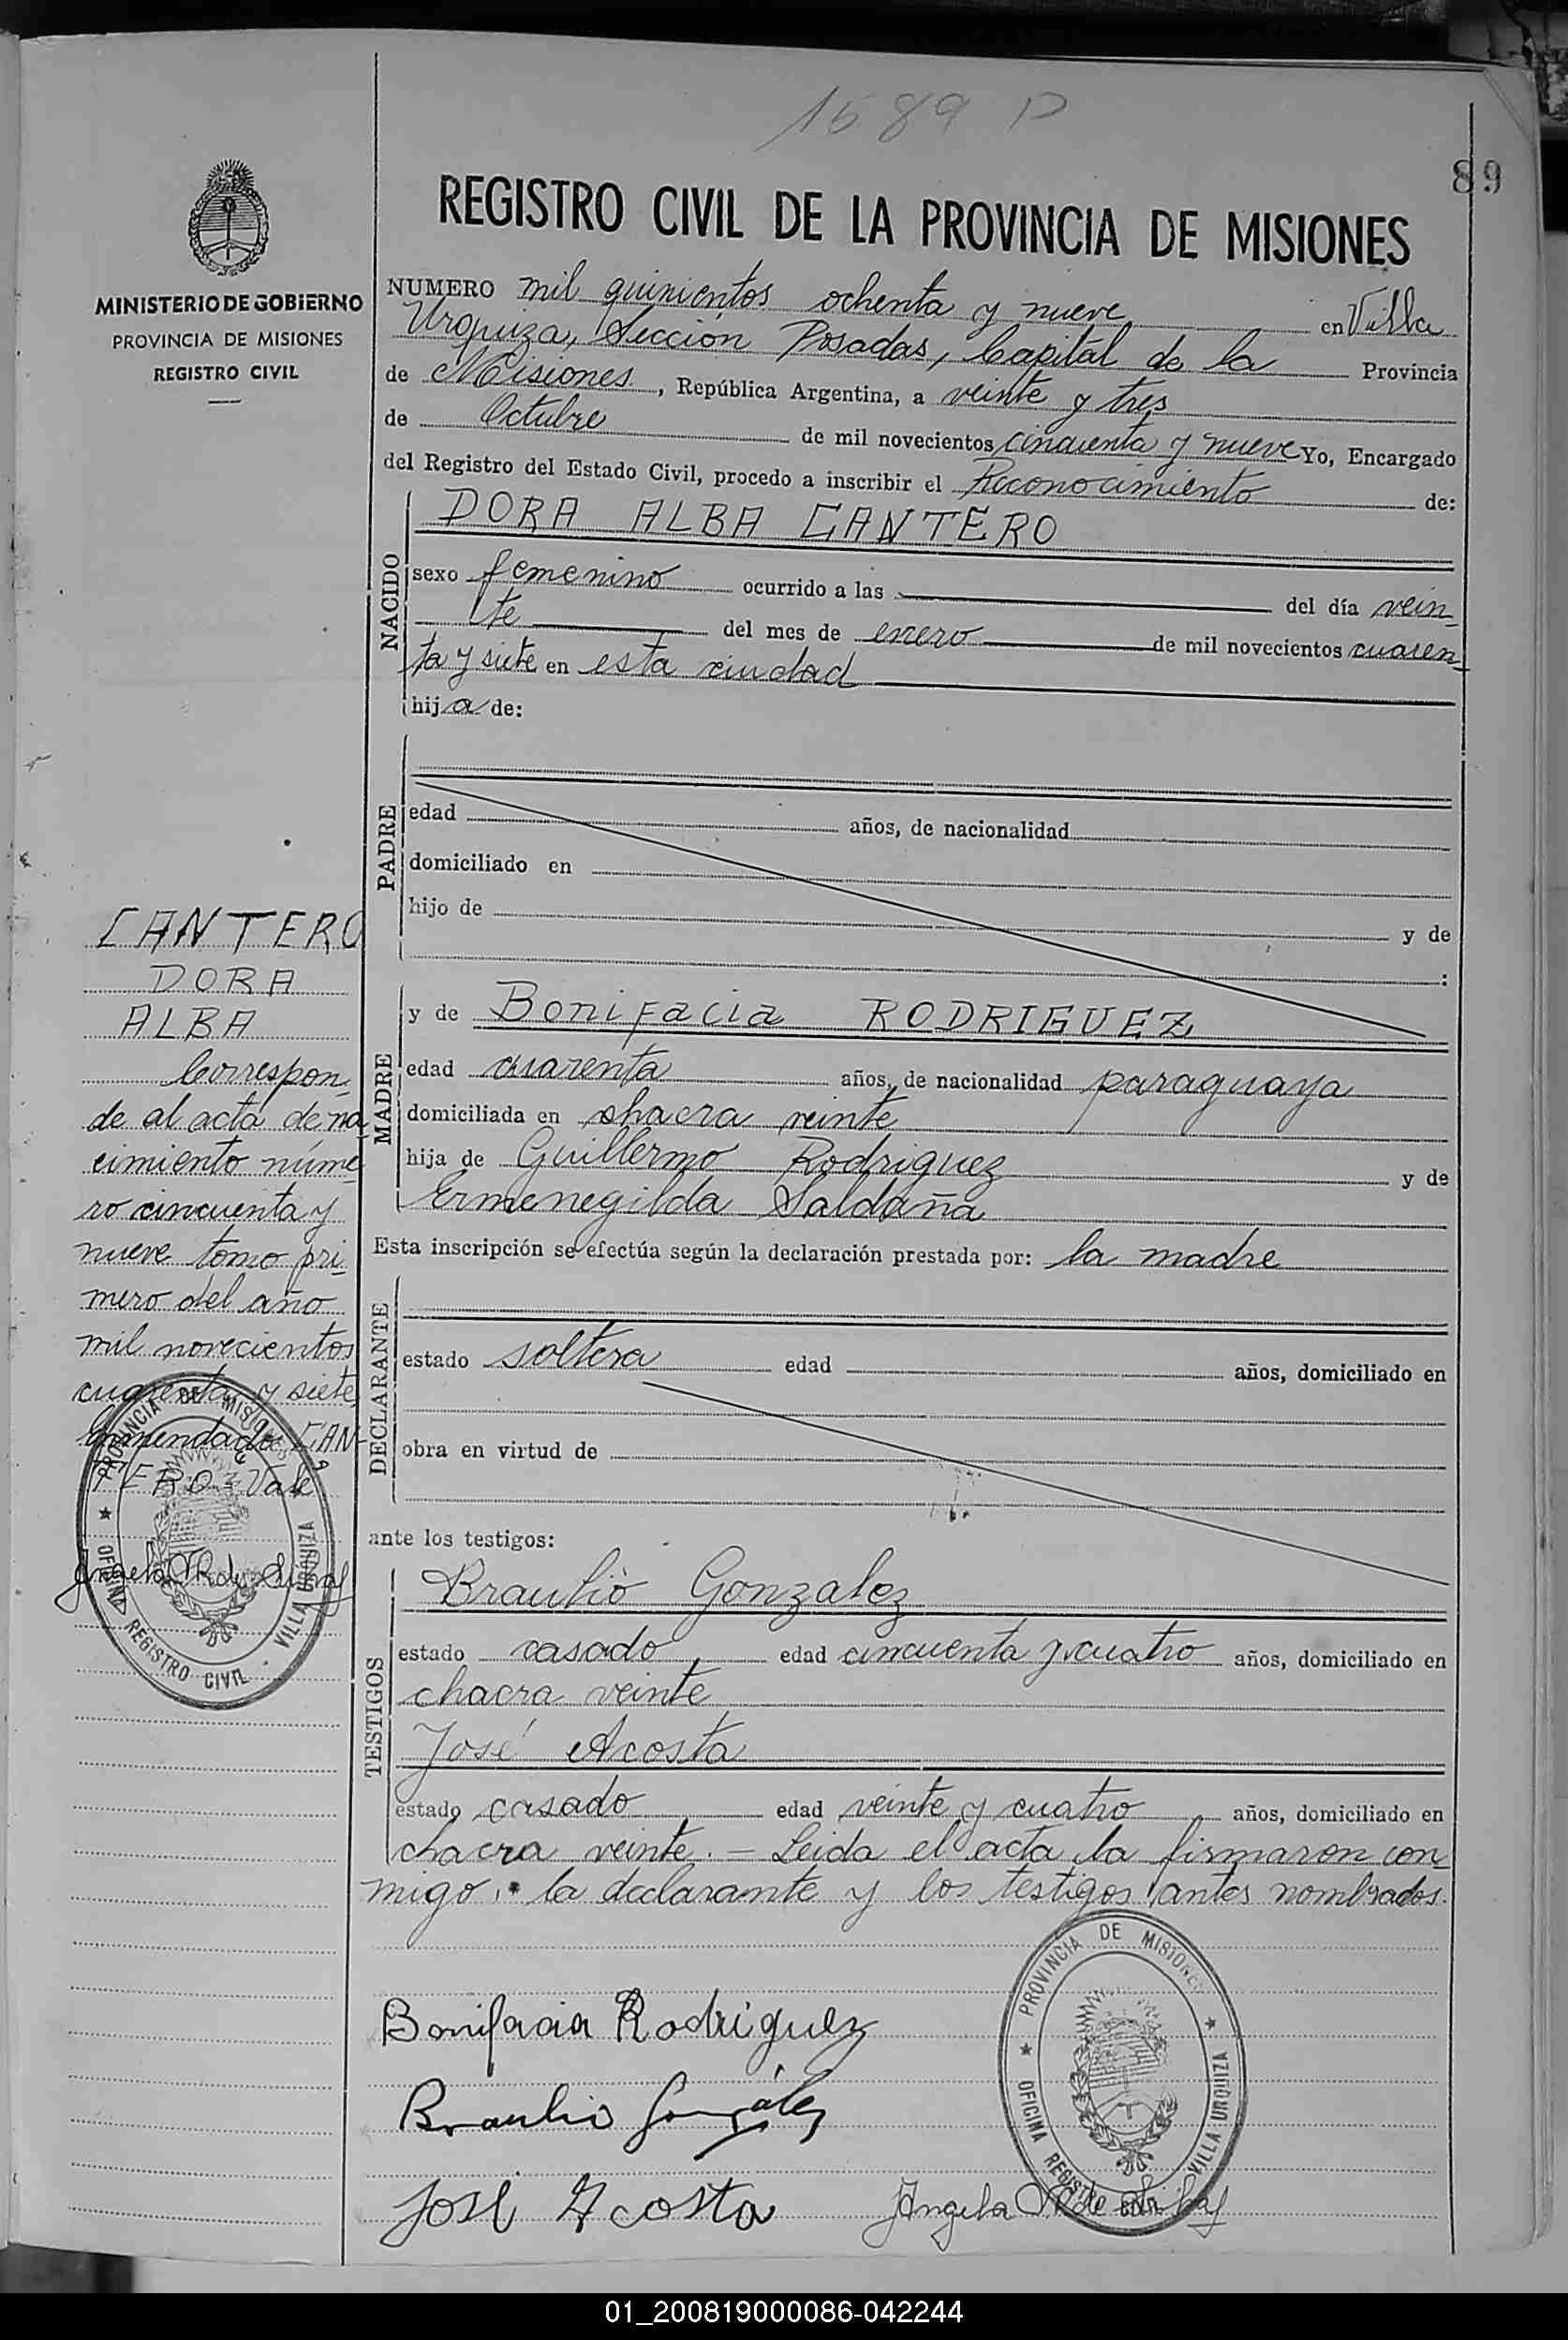 1589 P
89
REGISTRO CIVIL DE LA PROVINCIA DE MISIONES
MINISTERIO DE GOBIERNO
PROVINCIA DE MISIONES
REGISTRO CIVIL
NUMERO mil quinientos ochenta y nueve en Villa
Urquiza, Sección Posadas, Capital de la Provincia
de Misiones, República Argentina, a veinte y tres
de Octubre de mil novecientos cincuenta y nueve Yo, Encargado
del Registro del Estado Civil, procedo a inscribir el Reconocimiento de:
NACIDO
DORA ALBA CANTERO
sexo femenino ocurrido a las del día vein-
te del mes de enero de mil novecientos cuaren-
ta y siete en esta ciudad
hija de:
PADRE
edad años, de nacionalidad
domiciliado en
hijo de y de
:
MADRE
y de Bonifacia RODRIGUEZ
edad cuarenta años, de nacionalidad paraguaya
domiciliada en chacra veinte
hija de Guillermo Rodriguez y de
Ermenegilda Saldaña
Esta inscripción se efectúa según la declaración prestada por: la madre
DECLARANTE
estado soltera edad años, domiciliado en
obra en virtud de
ante los testigos:
TESTIGOS
Braulio Gonzalez
estado casado edad cincuenta y cuatro años, domiciliado en
chacra veinte
José Acosta
estado casado edad veinte y cuatro años, domiciliado en
chacra veinte. — Leida el acta la firmaron con-
migo, la declarante y los testigos antes nombrados.
CANTERO
DORA
ALBA
Correspon-
de al acta de na-
cimiento núme-
ro cincuenta y
nueve tomo pri-
mero del año
mil novecientos
cuarenta y siete
enmendado CAN-
TERO = Vale
PROVINCIA DE MISIONES
OFICINA REGISTRO CIVIL - VILLA URQUIZA
Bonifacia Rodriguez
Braulio González
José Acosta
Angela
PROVINCIA DE MISIONES
OFICINA REGISTRO CIVIL VILLA URQUIZA
01_200819000086-042244